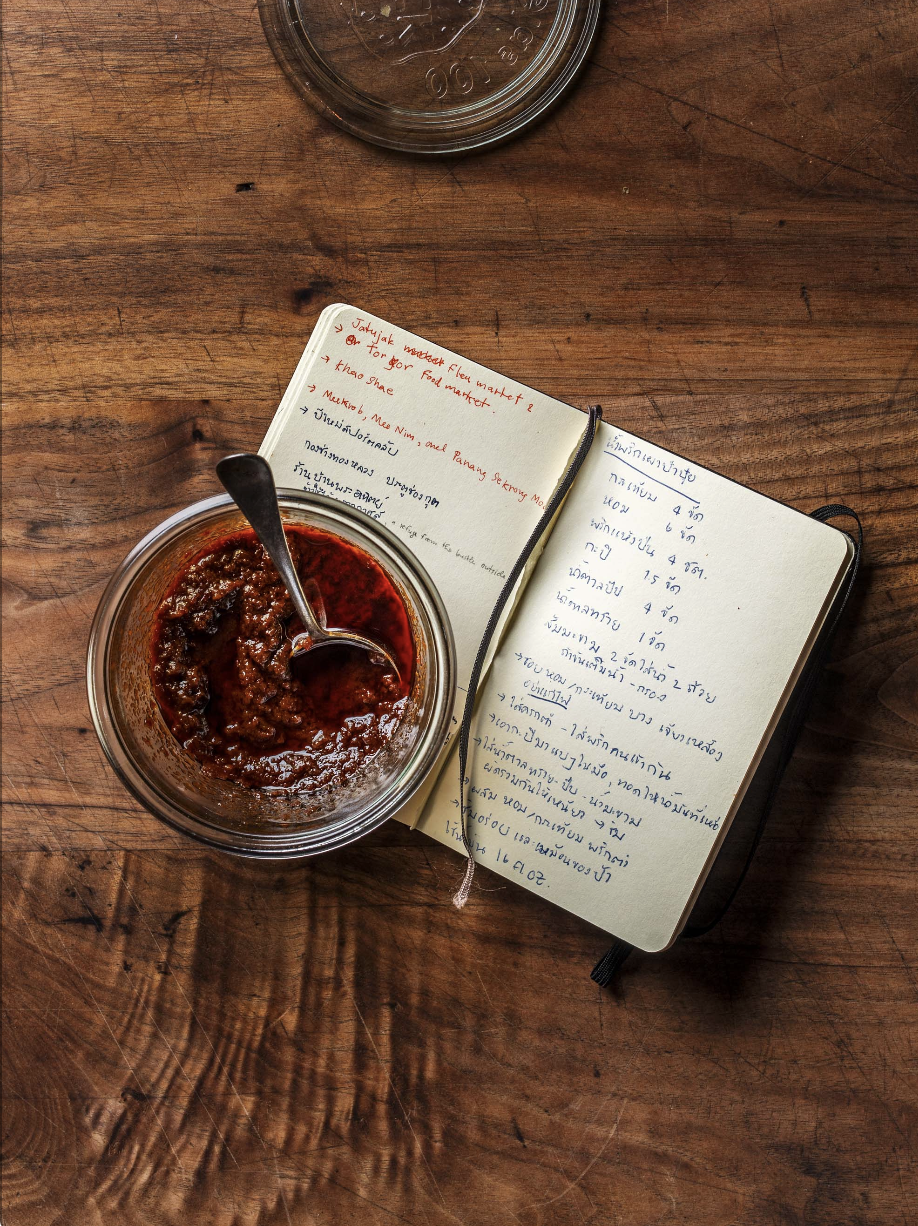 → Jatujak Flea market &
or Tor gor Food market.
→ Khao Shae
→ Meekrob, Mee Nim, and Panang Sekrong Mo
→
กองช่างทองหลวง ประตูช่องกุด
ร้านบ้านพระอาทิตย์
a refuge from the bustle outside
น้ำพริกเผาป้าปุ๋ย
กระเทียม 4 ขีด
หอม 6 ขีด
พริกแห้งป่น 4 ขีด.
กะปิ 1.5 ขีด
น้ำตาลปีป 4 ขีด
น้ำตาลทราย 1 ขีด
ส้มมะขาม 2 ขีดใส่น้ำ 2 ถ้วย
คั้นน้ำ - กรอง
→ ซอย หอม/กระเทียม บาง เจียวเหลือง
อย่าแก่ไฟ
→ - ใส่พริกคนเข้ากัน
→ เอากะปิมาแบๆในมือ, ทอดให้
→ ใส่น้ำตาลทราย ปีบ, น้ำมะขาม
ผัดรวมกันให้เหนียว → ชิม
→ ผสม หอม/กระเทียม พริกตำ
→ ชิมอร่อย และเหมือนของป้า
16 fl oz.